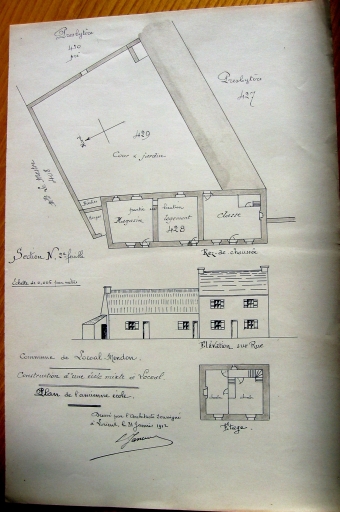 Presbytère
430
pré
Presbytère
427
429
Cour & jardin
Magasin
partie
logement
428
Classe
Section N. 2e feuille
Rez de chaussée
Echelle de 0,005 par mètre
Elévation sur Rue
Commune de Locoal Mendon.
Construction d'une école mixte à Locoal
Plan de l'ancienne école.
Dressé par l'Architecte soussigné
à Lorient, le 31 Janvier 1912
Etage